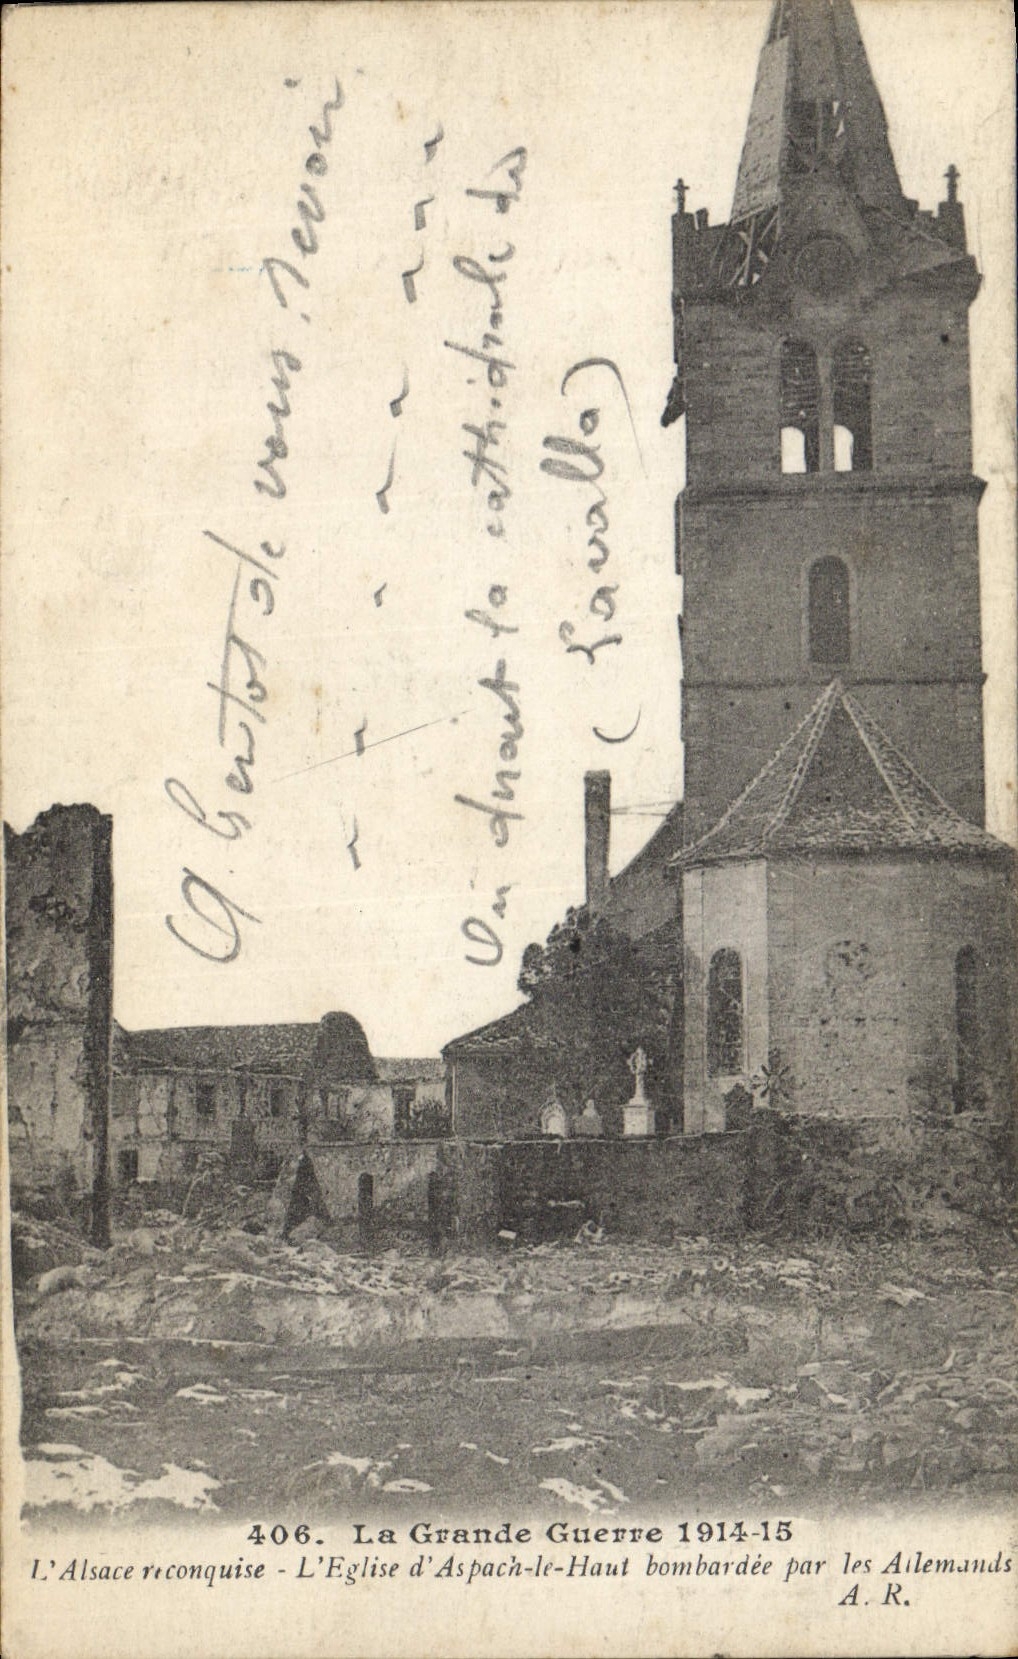 A bentot de vous revoir
devant la cathédrale de
(Lavalla)
406. La Grande Guerre 1914-15
L'Alsace reconquise - L'Eglise d'Aspach-le-Haut bombardée par les Allemands
A. R.